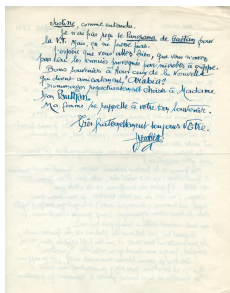 comme entendu.
Je n'ai pas reçu le Panorama de Gaëtan pour
la V.F. Mais, ça ne presse pas.
J'espère que vous allez bien, que vous n'avez
pas les ennuis provoqués par microbes à grippe.
Bons souvenirs à tous ceux de la Nouvelle
qui disent amicalement,
Hommages respectueusement choisis à Madame
Jean Paulhan.
Ma femme se rappelle à votre bon souvenir.
Très fraternellement toujours vôtre.